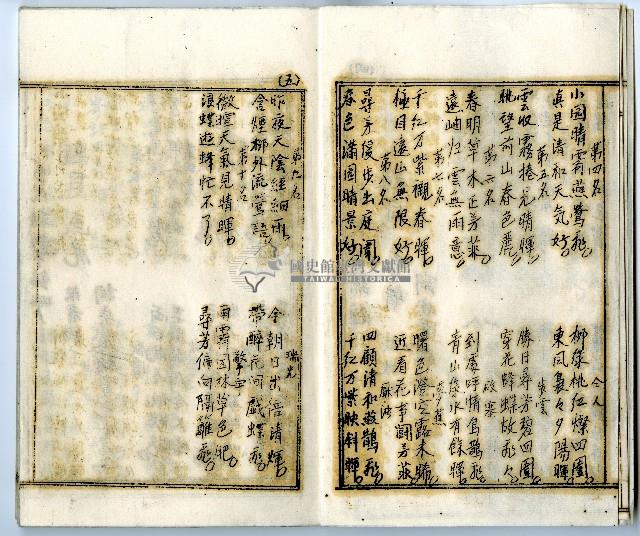 第四名 仝人
小园晴霽燕鶯飛 柳綠桃红燦四圍
真是清和天氣好 東風裊々夕陽暉
第五名
雲收霧捲見晴暉 勝日尋芳碧四圍
眺望前山春色麗 穿花 蝶故飛々
第六名
春明草木正芳菲 到處呼晴鳥鵲飛
遠岫归雲無雨意 青山綠水有餘暉
第七名
千红万紫襯春暉 曙色澄空露未晞
極目遠山無限好 近看花事鬪芳菲
第八名
尋芳 步出庭闈 四顧清和 鵲飛
春色滿園晴景好 千红万紫映斜暉
(五)
第九名 瑞光
昨夜天陰經細雨 今朝日出倍清輝
含煙柳外流鶯語 帶醉花间戲蝶飛
第十名 擎甫
微暄天氣見晴暉 雨霽园林草色肥
浪蝶遊蜂忙不了 尋芳 向隔籬飛
國史館臺灣文獻館
TAIWAN HISTORICA